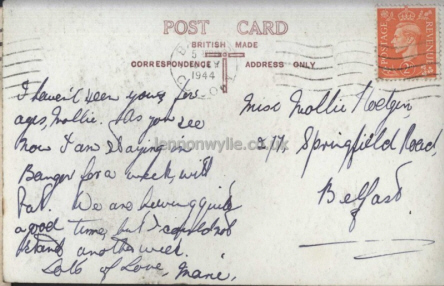 POST CARD
BRITISH MADE
CORRESPONDENCE
ADDRESS ONLY
1944
POSTAGE
REVENUE
I haven't seen you for
ages, Mollie. As you see
now I am staying in
Bangor for a week, with
Pat. We are having quite
a good time, but I could not
stand another week.
Lots of Love, Marie.
Miss Mollie
Springfield Road,
Belfast.
lennonwylie.co.uk